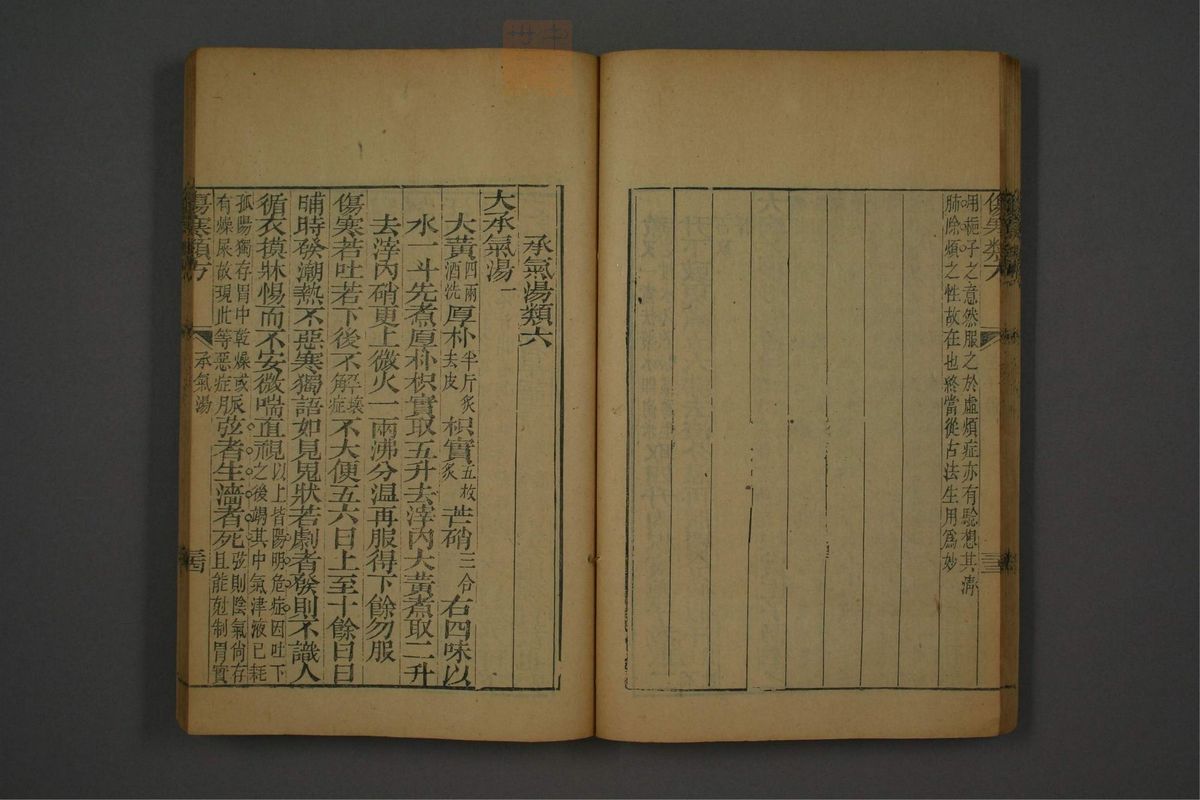 用梔子之意然服之於虛煩症亦有驗想其清
肺除煩之性故在也終當從古法生用爲妙
承氣湯類六
大承氣湯一
大黃四兩酒洗 厚朴半斤炙去皮 枳實五枚炙 芒硝三合 右四味以
水一斗先煮厚朴枳實取五升去滓內大黃煮取二升
去滓內硝更上微火一兩沸分温再服得下餘勿服
傷寒若吐若下後不解壞症不大便五六日上至十餘日日
晡時發潮熱不惡寒獨語如見鬼狀若劇者發則不識人
循衣摸牀惕而不安微喘直視以上皆陽明危症因吐下之後竭其中氣津液已耗
孤陽獨存胃中乾燥或有燥屎故現此等惡症脈弦者生濇者死弦則陰氣尚存且能尅制胃實
傷寒類方 承氣湯